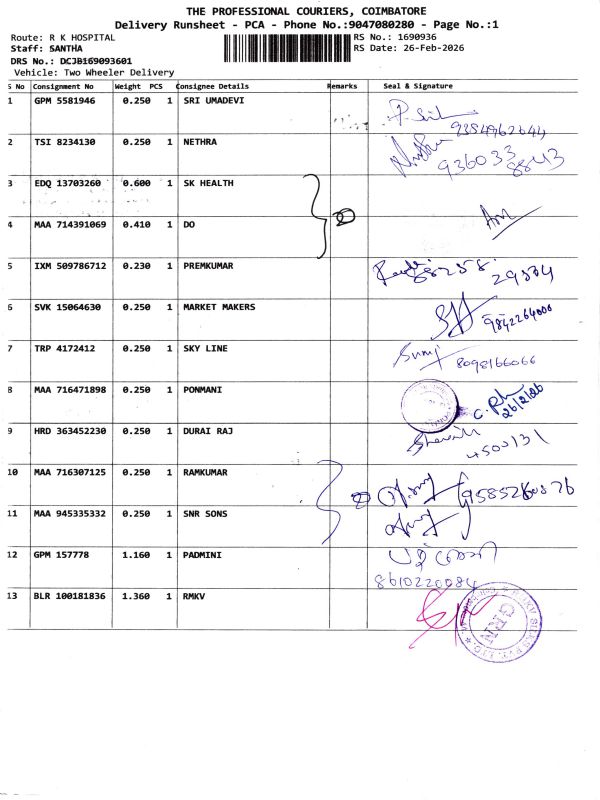 THE PROFESSIONAL COURIERS, COIMBATORE
Delivery Runsheet - PCA - Phone No.:9047080280 - Page No.:1
Route: R K HOSPITAL RS No.: 1690936
Staff: SANTHA RS Date: 26-Feb-2026
DRS No.: DCJB169093601
Vehicle: Two Wheeler Delivery
S No Consignment No Weight PCS Consignee Details Remarks Seal & Signature
1 GPM 5581946 0.250 1 SRI UMADEVI
9384962644
2 TSI 8234130 0.250 1 NETHRA
936033
8843
3 EDQ 13703260 0.600 1 SK HEALTH
4 MAA 714391069 0.410 1 DO
5 IXM 509786712 0.230 1 PREMKUMAR
6 SVK 15064630 0.250 1 MARKET MAKERS 9842264000
7 TRP 4172412 0.250 1 SKY LINE 8098166066
8 MAA 716471898 0.250 1 PONMANI 26/2/26
9 HRD 363452230 0.250 1 DURAI RAJ
4500131
10 MAA 716307125 0.250 1 RAMKUMAR
11 MAA 945335332 0.250 1 SNR SONS
12 GPM 157778 1.160 1 PADMINI
8610220084
13 BLR 100181836 1.360 1 RMKV
GRN